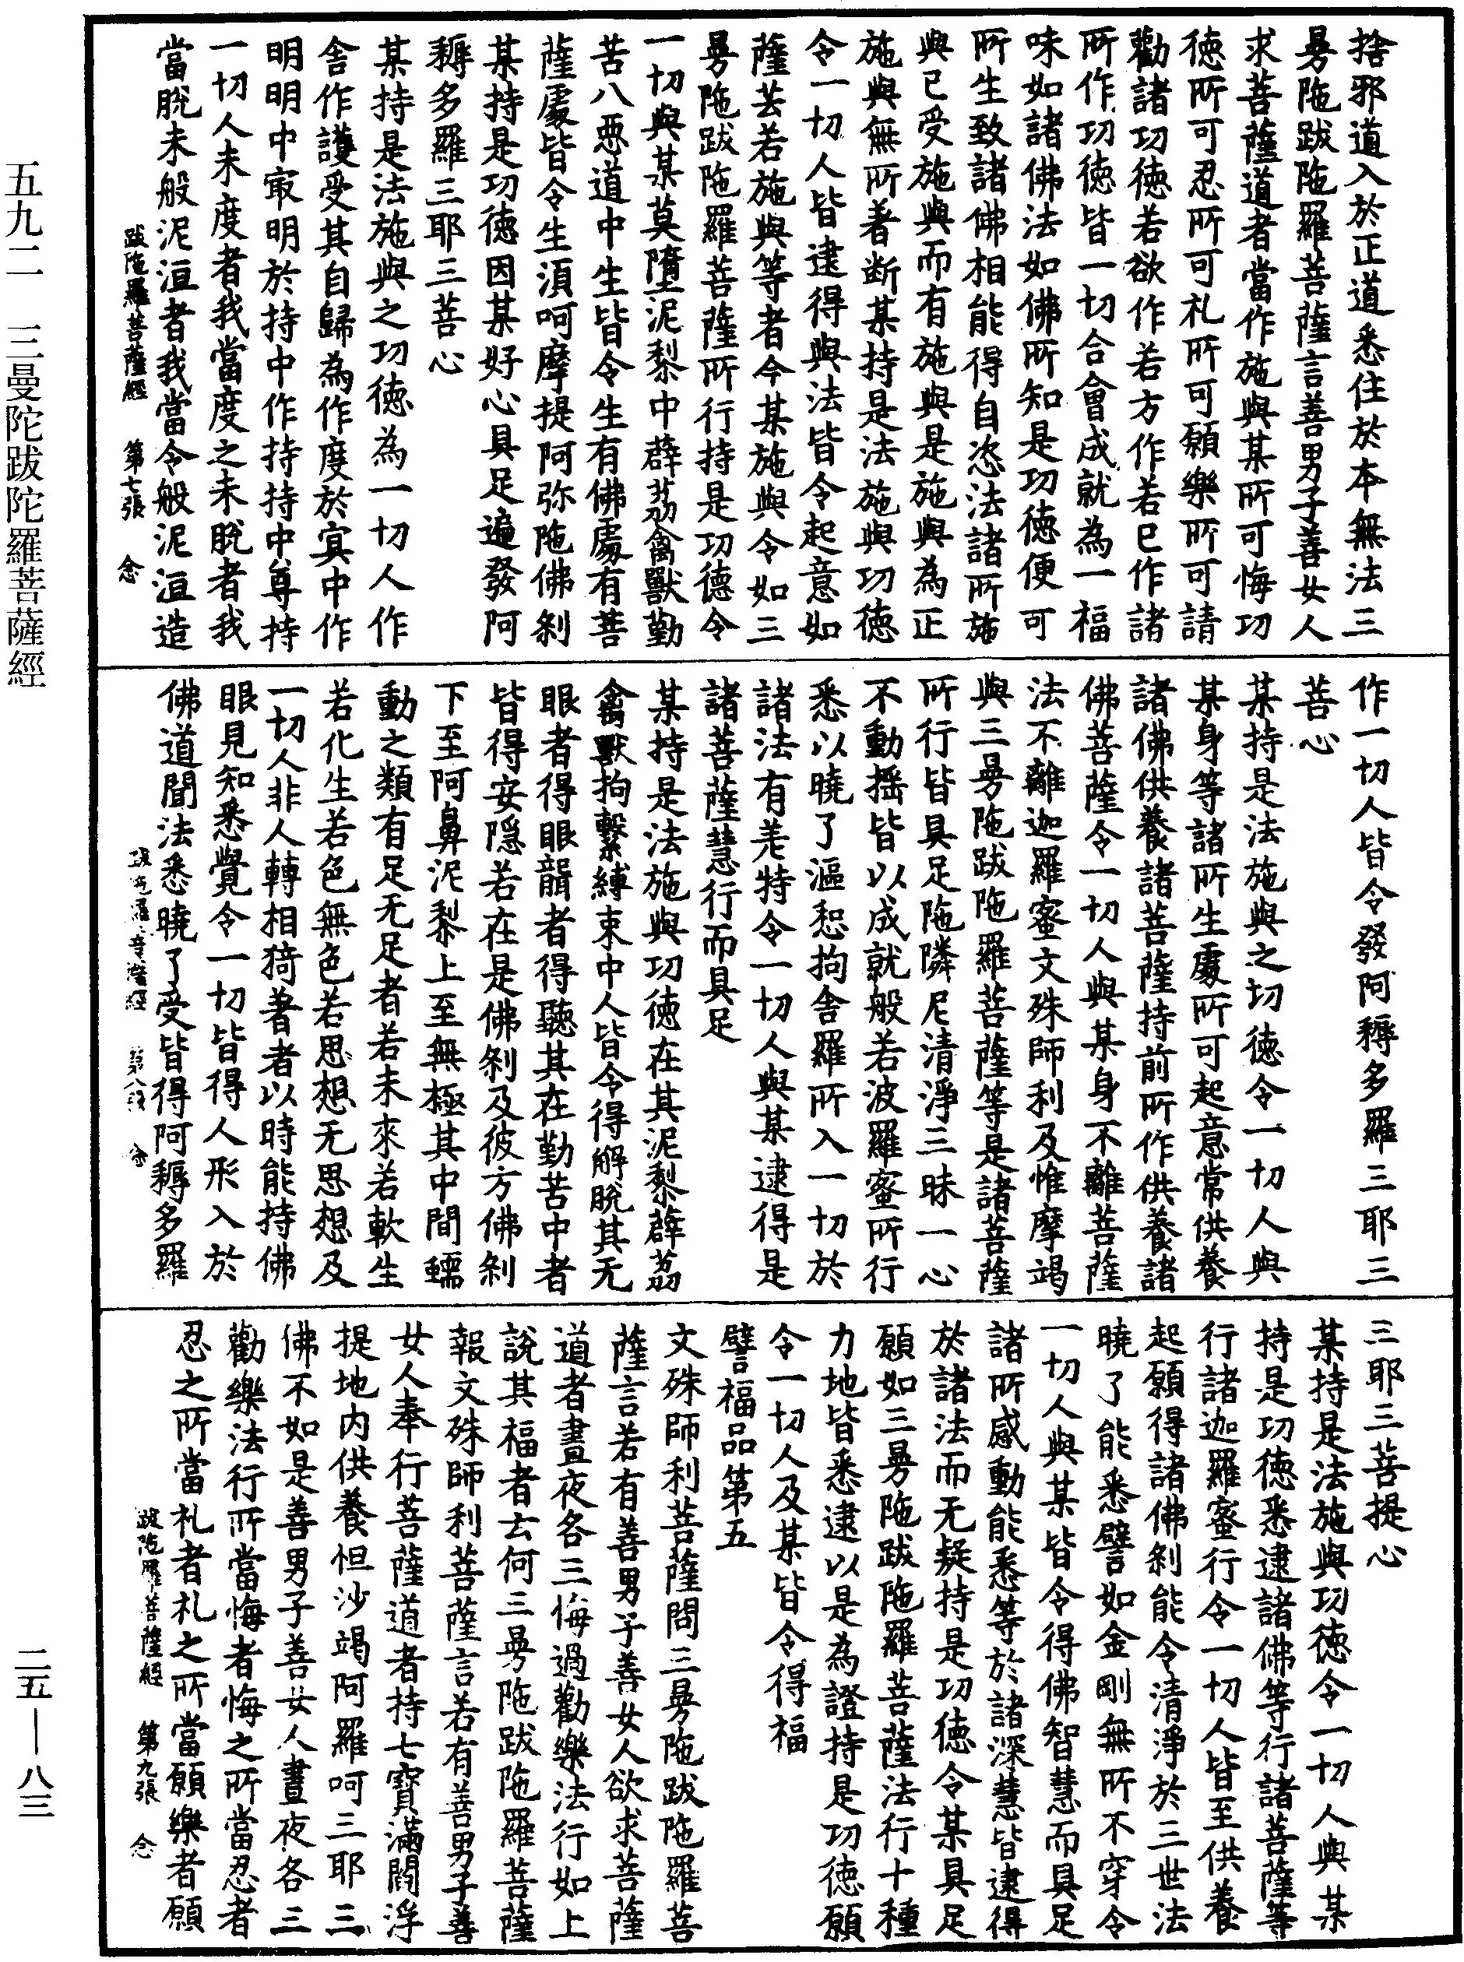 捨邪道入於正道悉住於本無法三
曼陁跋陁羅菩薩言善男子善女人
求菩薩道者當作施與某所可悔功
徳所可忍所可礼所可願樂所可請
勸諸功徳若欲作若方作若已作諸
所作功徳皆一切合會成就為一福
味如諸佛法如佛所知是功徳便可
所生致諸佛相能得自恣法諸所施
與已受施與而有施與是施與為正
施與無所著斷某持是法施與功徳
令一切人皆逮得與法皆令起意如
薩芸若施與等者令某施與令如三
曼陁跋陁羅菩薩所行持是功德令
一切與某莫墮泥犁中薜荔禽獸勤
苦八惡道中生皆令生有佛處有菩
薩處皆令生須呵摩提阿弥陁佛刹
某持是功徳因某好心具足遍發阿
耨多羅三耶三菩心
某持是法施與之功徳為一切人作
舍作護受其自歸為作度於㝠中作
明明中㝡明於持中作持持中尊持
一切人未度者我當度之未脫者我
當脫未般泥洹者我當令般泥洹造
跋陁羅菩薩經 第七張 念
作一切人皆令發阿耨多羅三耶三
菩心
某持是法施與之功徳令一切人與
某身等諸所生處所可起意常供養
諸佛供養諸菩薩持前所作供養諸
佛菩薩令一切人與某身不離菩薩
法不離迦羅蜜文殊師利及惟摩竭
與三曼陁跋陁羅菩薩等是諸菩薩
所行皆具足陁隣尼清淨三昧一心
不動揺皆以成就般若波羅蜜所行
悉以曉了漚惒拘舍羅所入一切於
諸法有㳣特令一切人與某逮得是
諸菩薩慧行而具足
某持是法施與功徳在其泥犁薜荔
禽獸拘繫縛束中人皆令得解脫其无
眼者得眼聾者得聽其在勤苦中者
皆得安隱若在是佛刹及彼方佛刹
下至阿鼻泥犁上至無極其中間蠕
動之類有足无足者若未來若軟生
若化生若色無色若思想无思想及
一切人非人轉相猗著者以時能持佛
眼見知悉覺令一切皆得人形入於
佛道聞法悉曉了受皆得阿耨多羅
跋陁羅菩薩經 第八張 念
三耶三菩提心
某持是法施與功徳令一切人與某
持是功徳悉逮諸佛等行諸菩薩等
行諸迦羅蜜行令一切人皆至供養
起願得諸佛刹能令清淨於三世法
曉了能悉譬如金剛無所不穿令
一切人與某皆令得佛智慧而具足
諸所感動能悉等於諸深慧皆逮得
於諸法而无疑持是功徳令某具足
願如三曼陁跋陁羅菩薩法行十種
力地皆悉逮以是為證持是功徳願
令一切人及某皆令得福
譬福品第五
文殊師利菩薩問三曼陁跋陁羅菩
薩言若有善男子善女人欲求菩薩
道者晝夜各三悔過勸樂法行如上
說其福者云何三曼陁跋陁羅菩薩
報文殊師利菩薩言若有善男子善
女人奉行菩薩道者持七寶滿閻浮
提地内供養怛沙竭阿羅呵三耶三
佛不如是善男子善女人晝夜各三
勸樂法行所當悔者悔之所當忍者
忍之所當礼者礼之所當願樂者願
跋陁羅菩薩經 第九張 念
五九二 三曼陀跋陀羅菩薩經
二五—八三